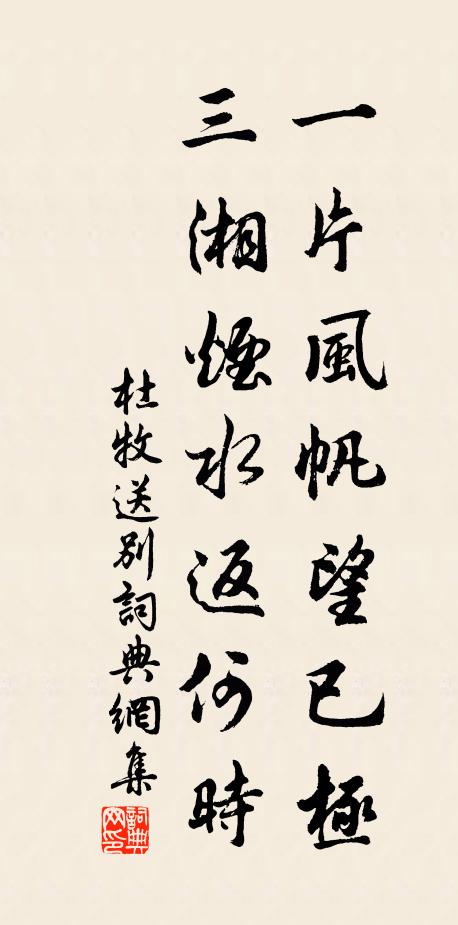 一片風帆望已極
三湘煙水返何時
杜牧送別詞典網集
詞典
網印